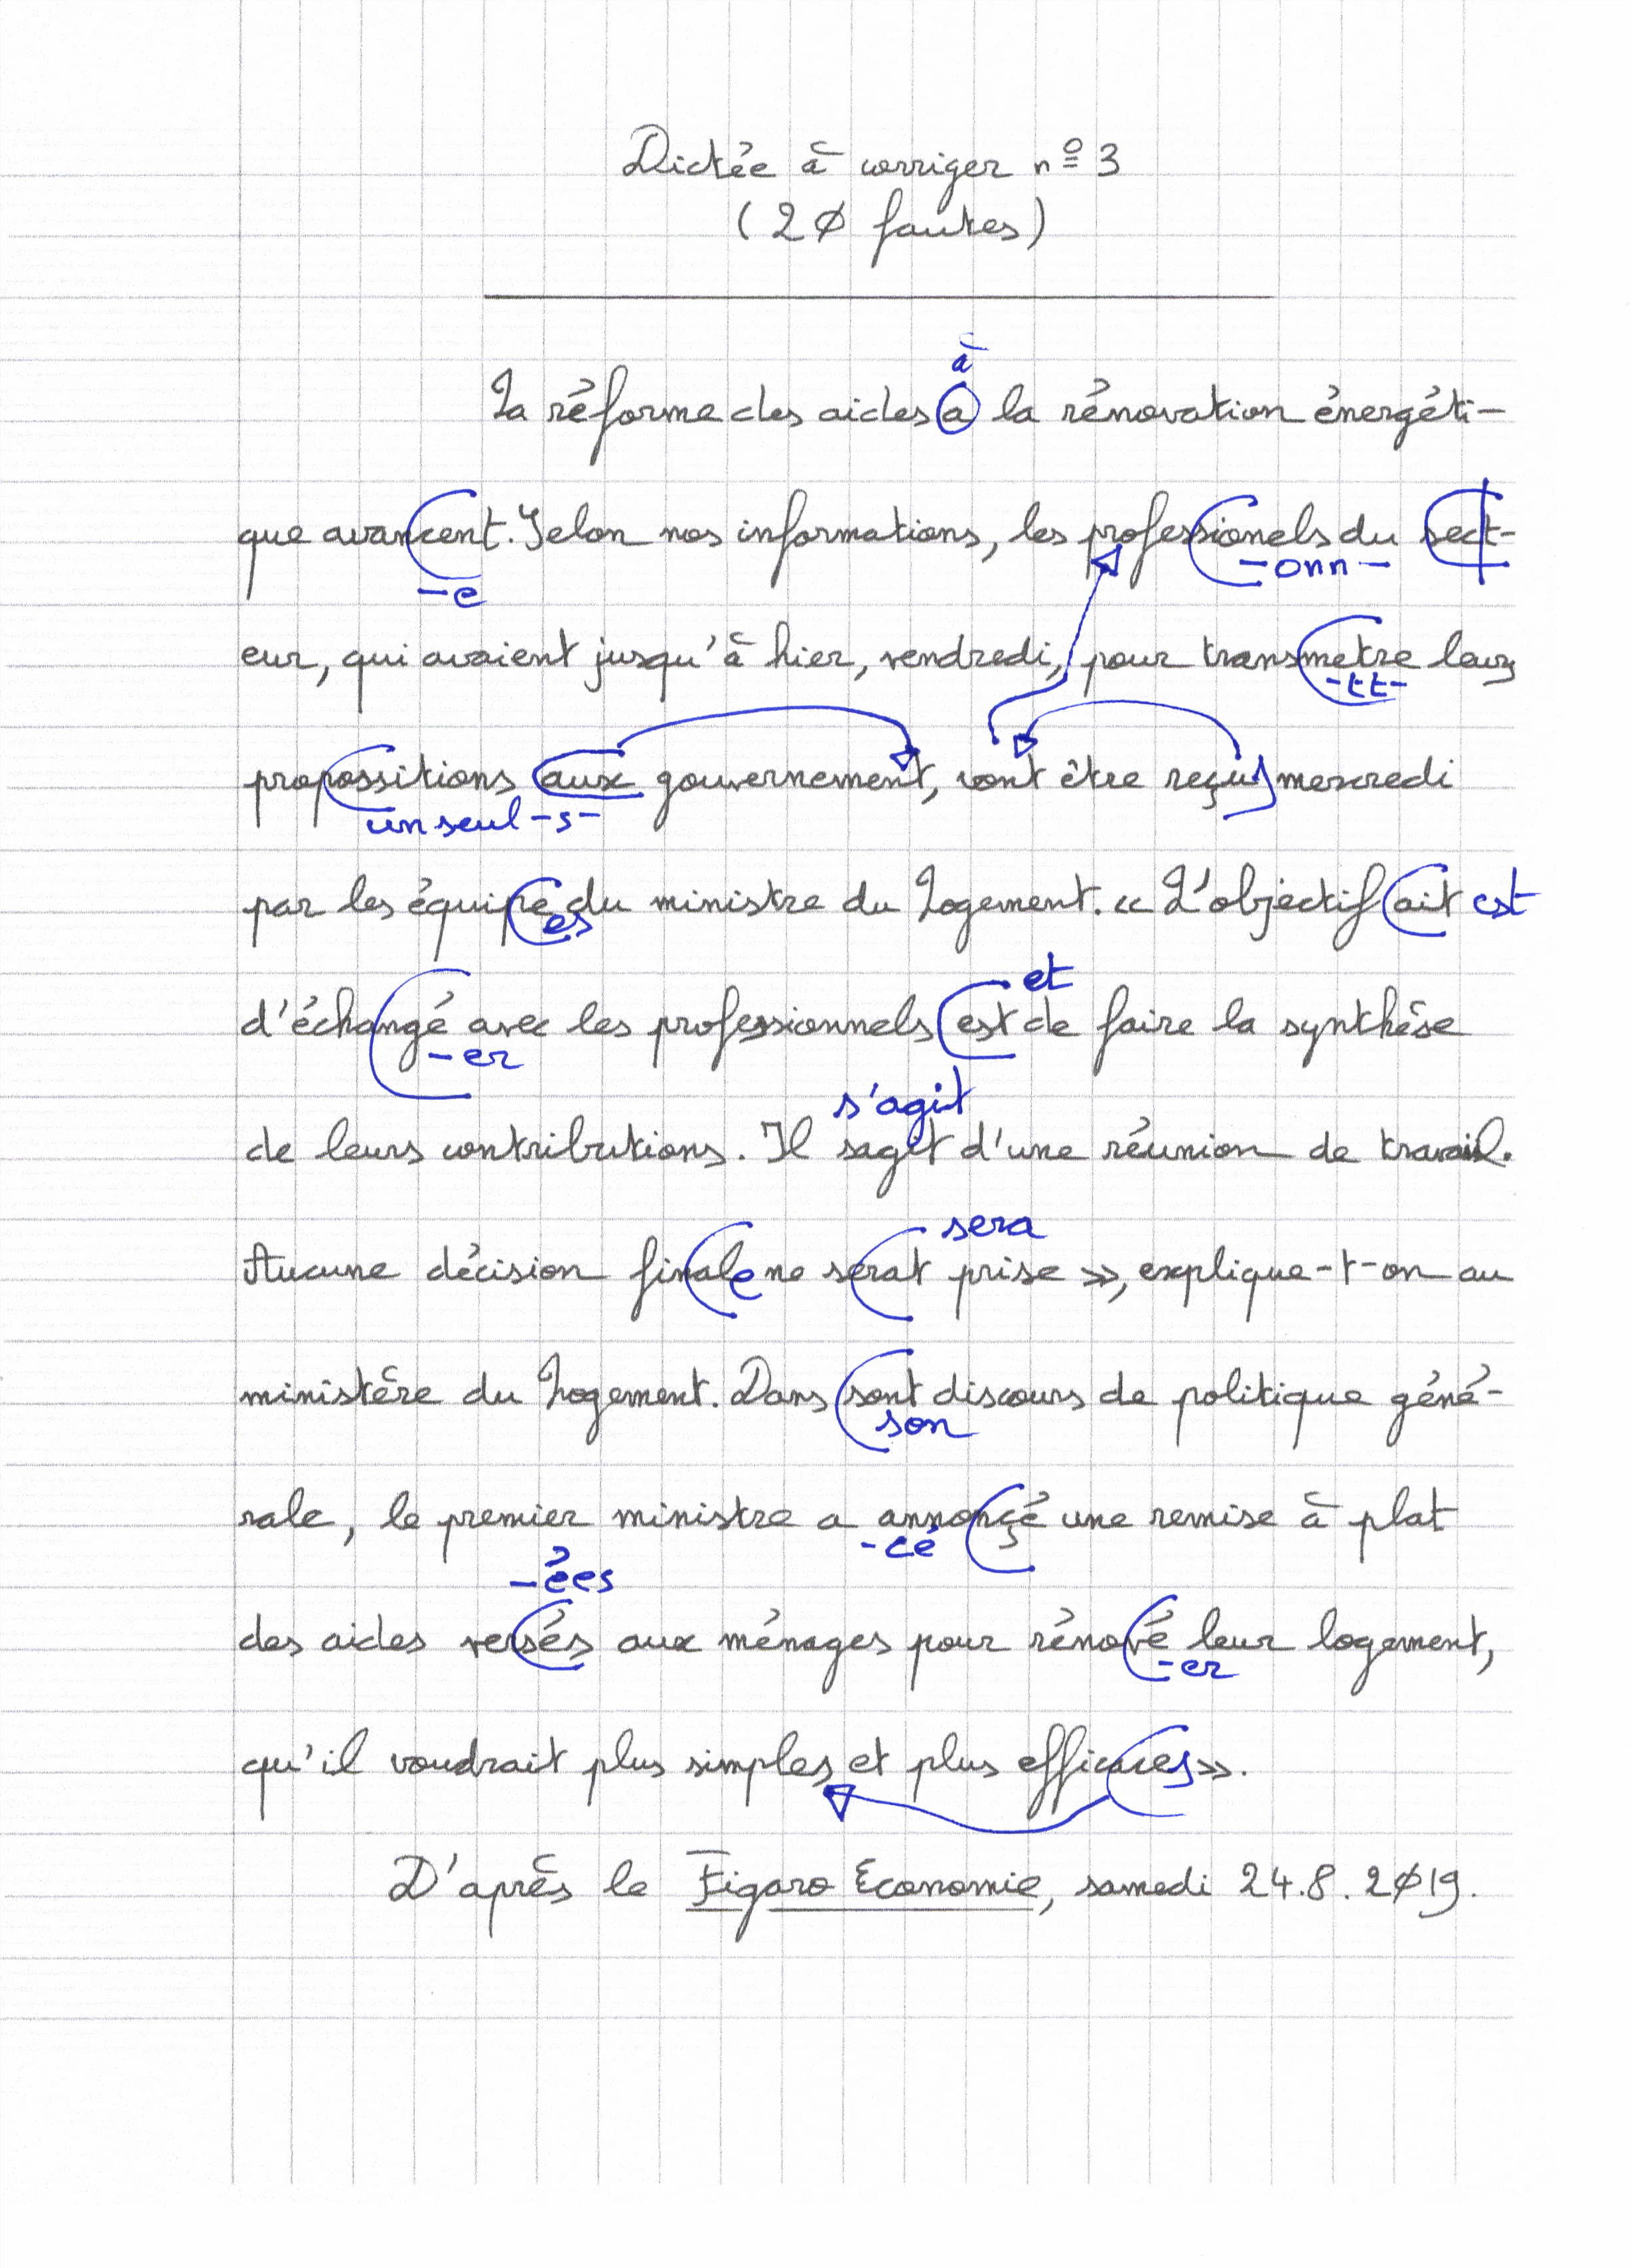 Dictée à corriger nº 3
(20 fautes)
à
La réforme des aides a la rénovation énergéti-
que avancent. Selon nos informations, les professionels du sect-
-e
-onn-
eur, qui avaient jusqu'à hier, vendredi, pour transmetre leurs
-tt-
propossitions aux gouvernement, vont être reçus mercredi
un seul -s-
par les équipe du ministre du Logement. « L'objectif ait est
es
et
d'échangé avec les professionnels est de faire la synthèse
-er
s'agit
de leurs contributions. Il sagit d'une réunion de travail.
sera
Aucune décision finale ne serat prise », explique-t-on au
ministère du Logement. Dans sont discours de politique géné-
son
rale, le premier ministre a annonçé une remise à plat
-cé
-ées
des aides versés aux ménages pour rénové leur logement,
-er
qu'il voudrait plus simples et plus efficaces ».
D'après le Figaro Économie, samedi 24.8.2019.